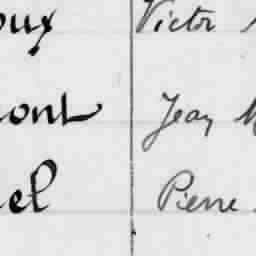 oux Victor
ont Jean M
el Pierre